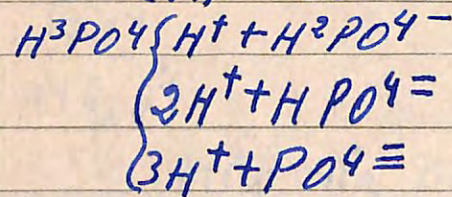 H³PO4 { H⁺ + H²PO4⁻
2H⁺ + HPO4⁼
3H⁺ + PO4≡